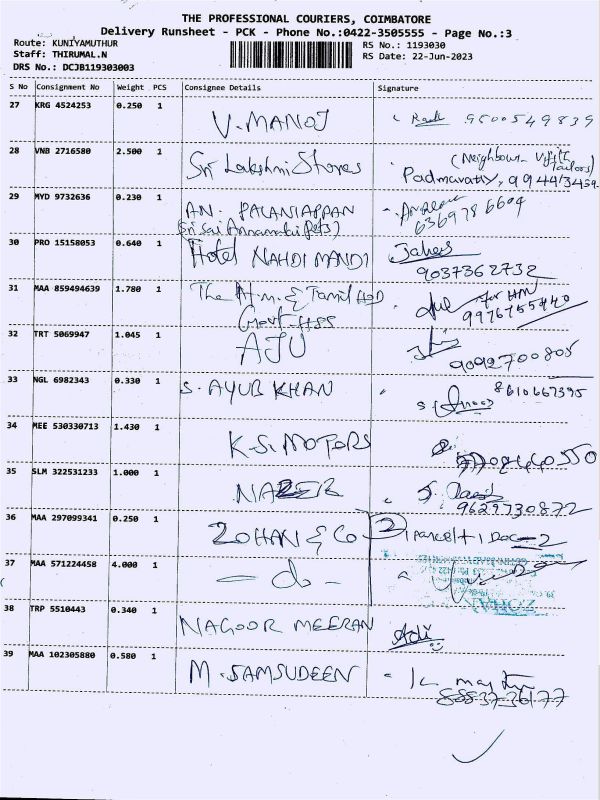 THE PROFESSIONAL COURIERS, COIMBATORE
Delivery Runsheet - PCK - Phone No.:0422-3505555 - Page No.:3
Route: KUNIYAMUTHUR
RS No.: 1193030
Staff: THIRUMAL.N
RS Date: 22-Jun-2023
DRS No.: DCJB119303003
S No Consignment No Weight PCS Consignee Details Signature
27 KRG 4524253 0.250 1 V.MANOJ 9500549839
28 VNB 2716580 2.500 1 Sri Lakshmi Stores (Neighbour-
Tailors)
Padmavathy, 99443459
29 MYD 9732636 0.230 1 AN. PALANIAPPAN
6369786604
30 PRO 15158053 0.640 1 Hotel NAHDI MANDI
9037362732
31 MAA 859494639 1.780 1 The H.M. & Tamil HOD for HM
Govt. HSS 9976755420
32 TRT 5069947 1.045 1 AJU
9092700805
33 NGL 6982343 0.330 1 S. AYUB KHAN 8610667395
34 MEE 530330713 1.430 1 K.S. MOTORS
35 SLM 322531233 1.000 1 NAZER
9629730872
36 MAA 297099341 0.250 1 ZOHAN & Co 2) 1 Parcel + 1 Doc = 2
37 MAA 571224458 4.000 1 - do -
38 TRP 5510443 0.340 1 NAGOOR MEERAN Adi
39 MAA 102305880 0.580 1 M. SAMSUDEEN
8883736177